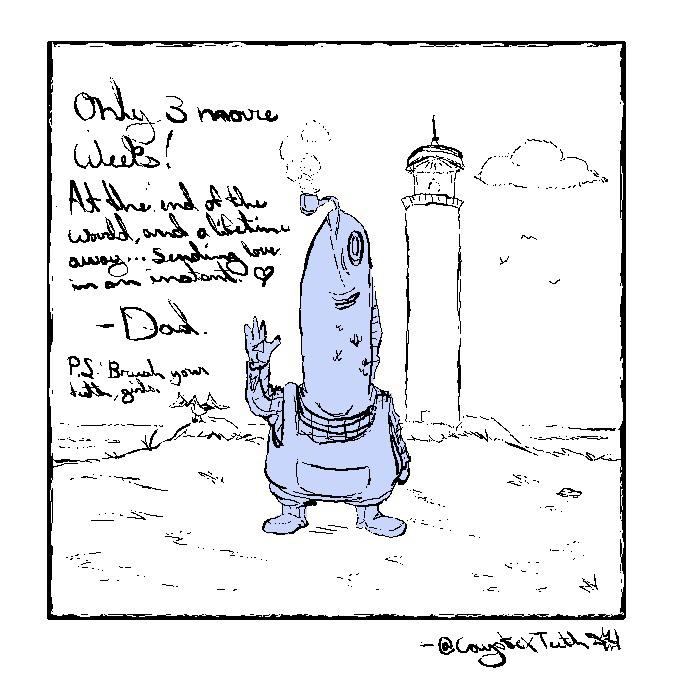 Only 3 more
Weeks!
At the end of the
world, and a lifetime
away... Sending love
in an instant. ♡
- Dad.
P.S. Brush your
teeth, girls.